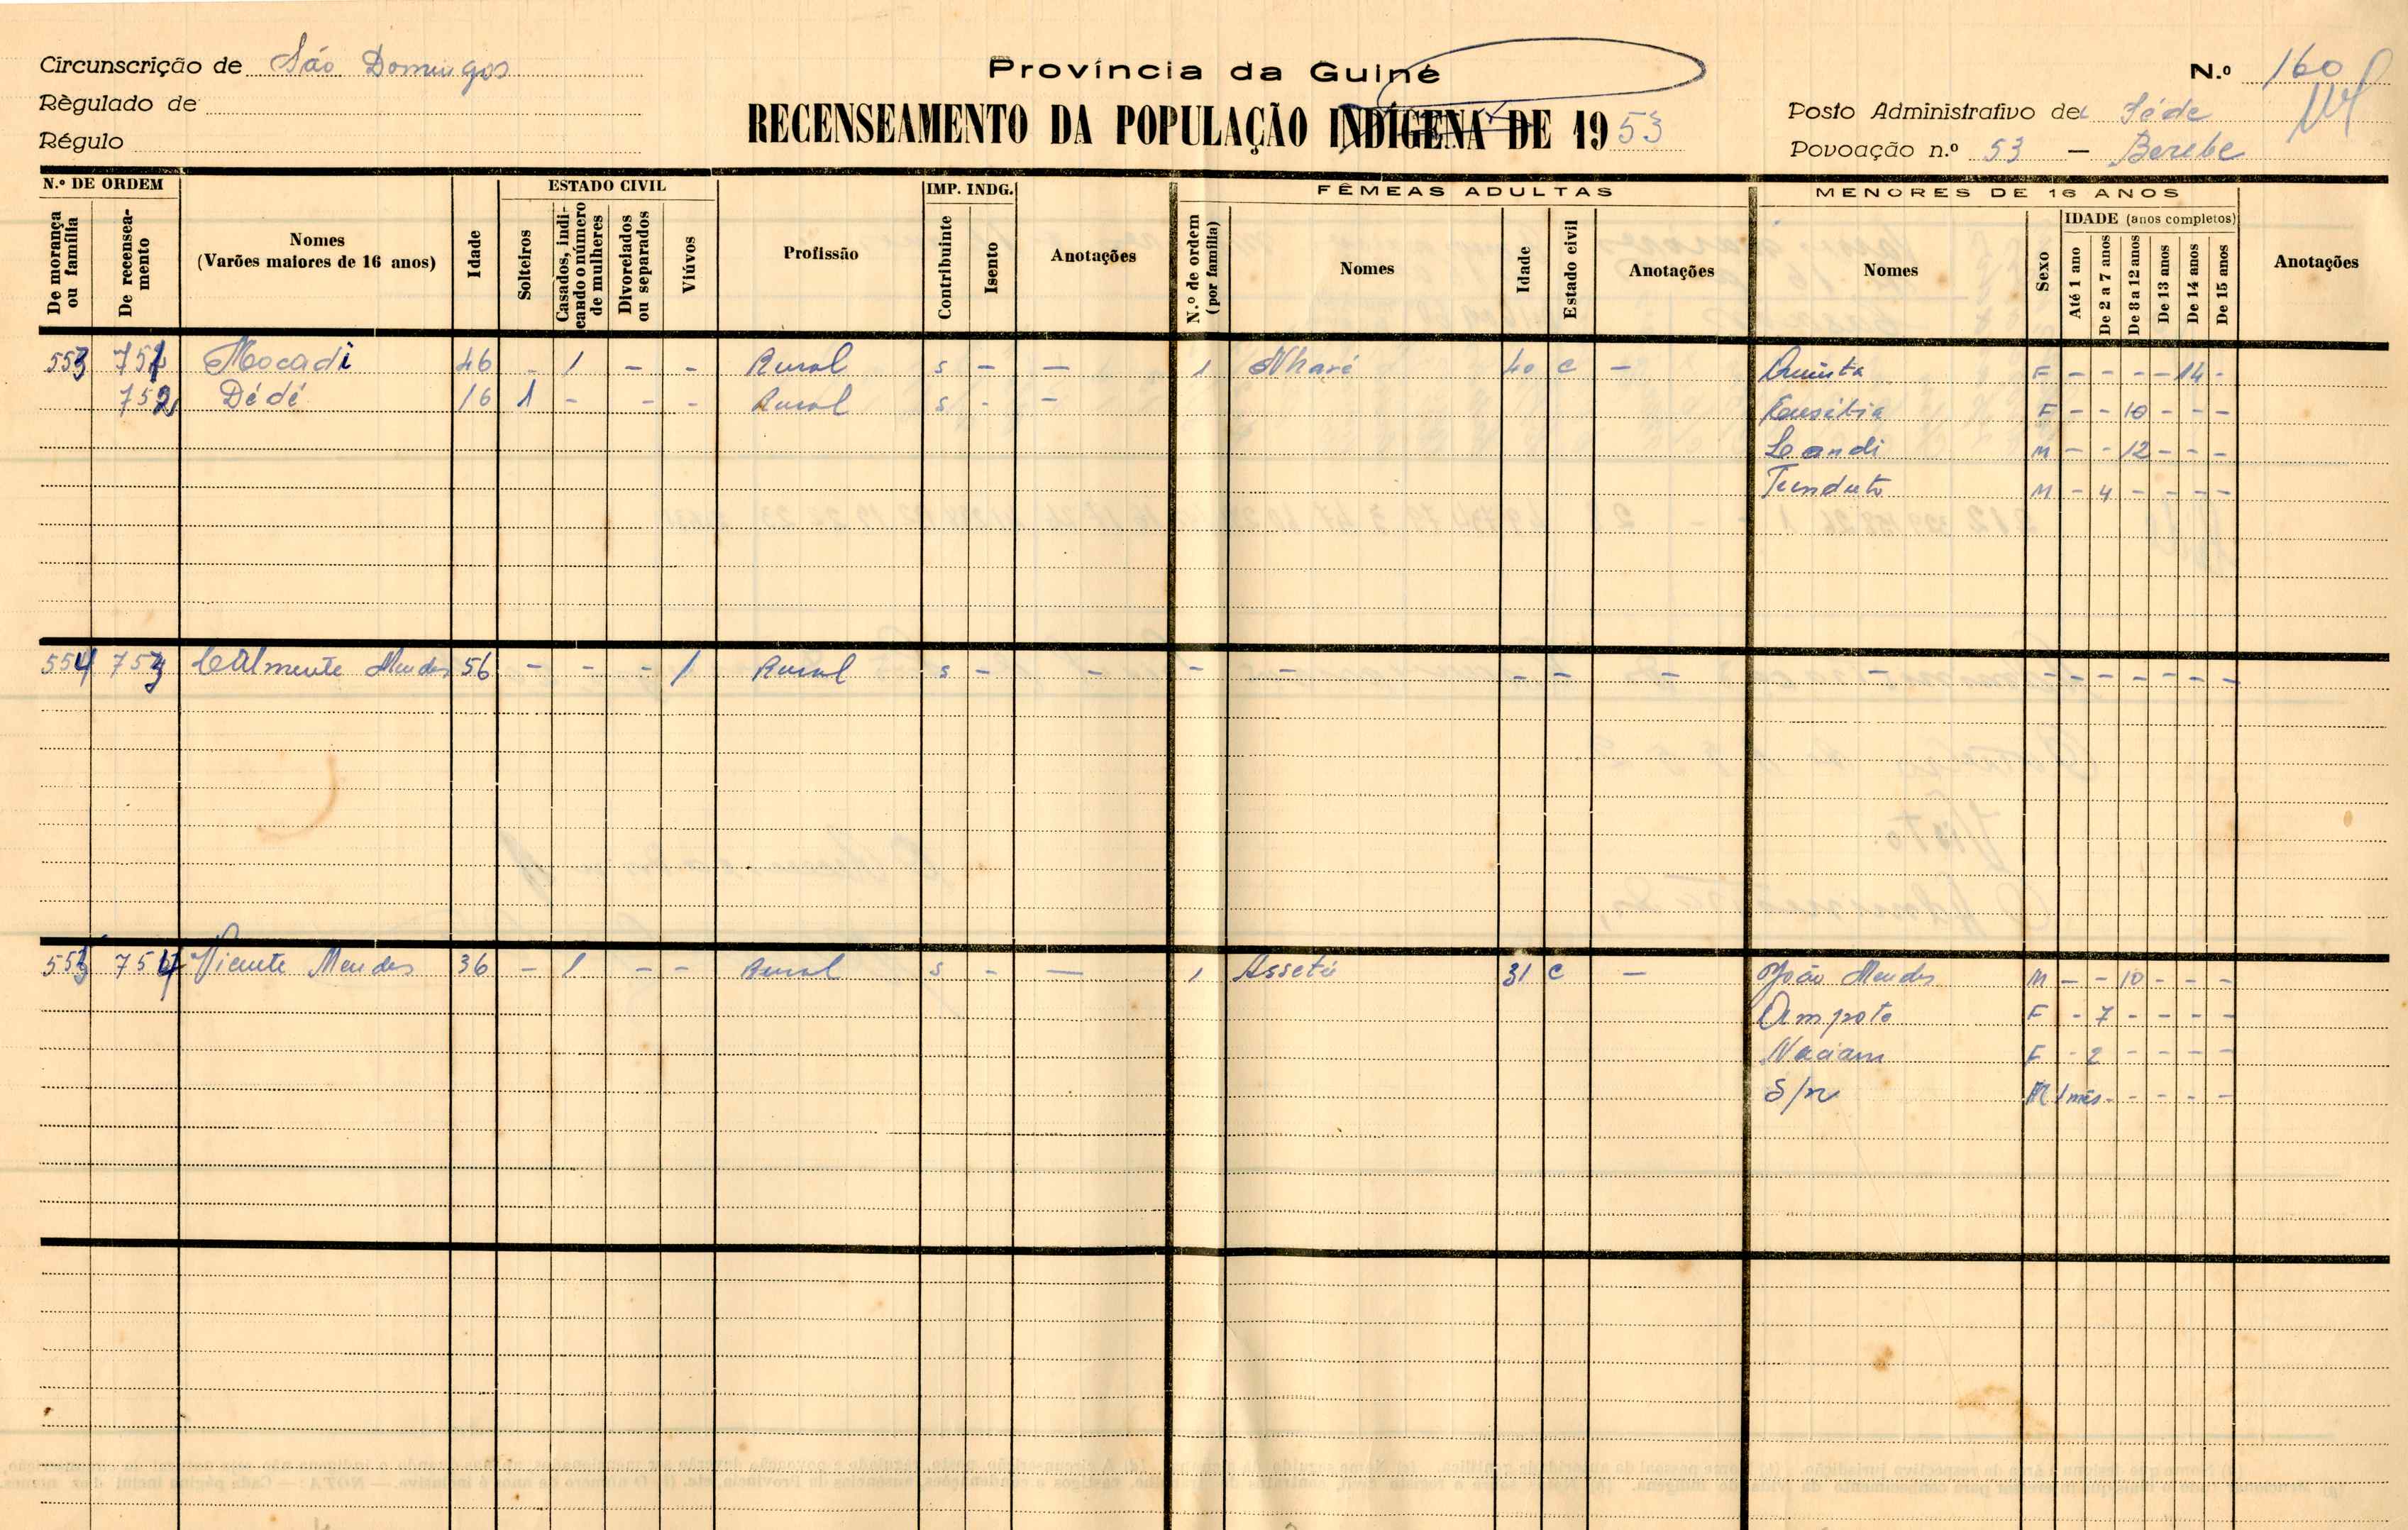 Circunscrição de São Domingos
Règulado de
Régulo
Província da Guiné
RECENSEAMENTO DA POPULAÇÃO INDÍGENA DE 1953
N.º 160
Posto Administrativo de Séde
Povoação n.º 53 — Berebe
N.º DE ORDEM
De morança ou família
De recenseamento
Nomes
(Varões maiores de 16 anos)
Idade
ESTADO CIVIL
Solteiros
Casados, indicando o número de mulheres
Divorciados ou separados
Viúvos
Profissão
IMP. INDG.
Contribuinte
Isento
Anotações
FÊMEAS ADULTAS
N.º de ordem (por família)
Nomes
Idade
Estado civil
Anotações
MENORES DE 16 ANOS
Nomes
Sexo
IDADE (anos completos)
Até 1 ano
De 2 a 7 anos
De 8 a 12 anos
De 13 anos
De 14 anos
De 15 anos
Anotações
553 751 Mocadi 46 - 1 - - Rural s - — 1 Nharé 40 c - Quinta F - - - - 14 -
752 Dédé 16 1 - - - Rural s - - Eusébia F - - 10 - - -
Leandi M - - 12 - - -
Tunduto M - 4 - - - -
554 753 Mendes 56 - - - 1 Rural s - - - - - - - - - - - - - - -
754 Vicente Mendes 36 - 1 - - Rural s - — 1 Asseté 31 c - João Mendes M - - 10 - - -
Ampoto F - 7 - - - -
Naciam F - 2 - - - -
S/n M 1 mês - - - - -